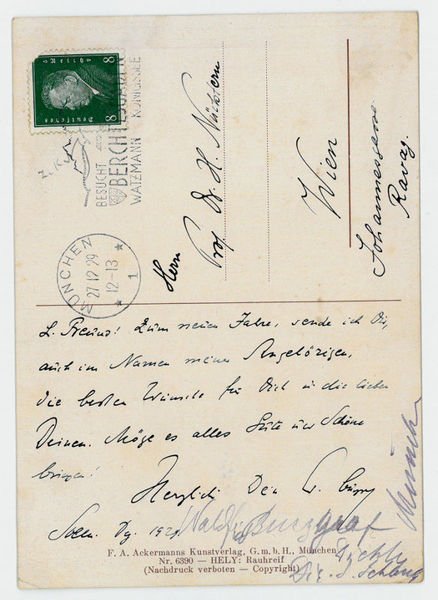 8 8
Deutsches Reich
BESUCHT
BERCHTESGADEN
WATZMANN KÖNIGSSEE
MÜNCHEN
27.12.29
12-13
* 1 *
Herrn
Prof. Dr. H.
Wien
Johannesgasse
Ravag.
L. Freund! Zum neuen Jahre, sende ich Dir,
auch im Namen meiner Angehörigen,
die besten Wünsche für Dich u die lieben
Deinen. Möge es alles Gute und Schöne
bringen!
Herzlich Dein
F. A. Ackermanns Kunstverlag, G. m. b. H., München
Nr. 6390 — HELY: Rauhreif
(Nachdruck verboten — Copyright)